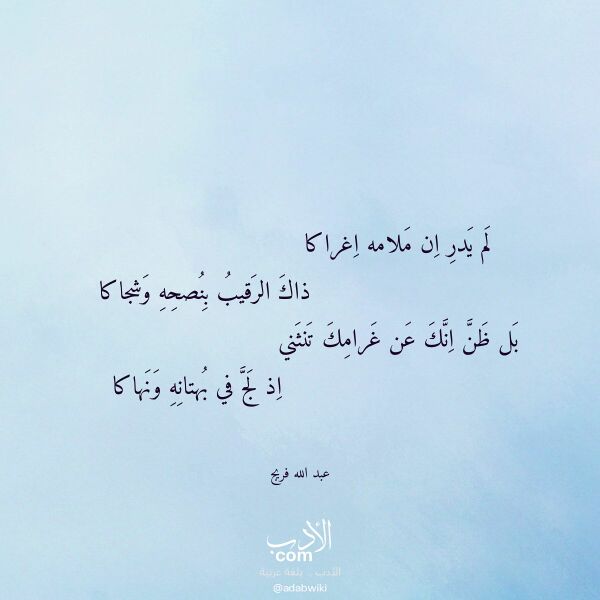 لَم يَدرِ اِن مَلامه اِغراكا
ذاكَ الرَقيبُ بِنُصحِهِ وَشجاكا
بَل ظَنَّ اِنَّكَ عَن غَرامِكَ تَنثَني
اِذ لَجَّ في بُهتانِهِ وَنَهاكا
عبد الله فريج
الأدب
com
الأدب .. بلغة عربية
@adabwiki